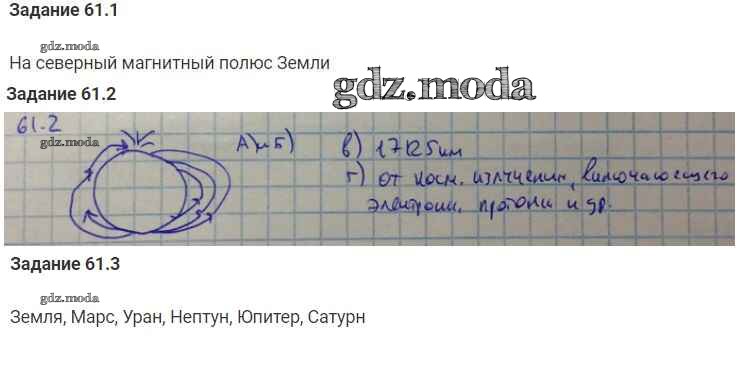 Задание 61.1
gdz.moda
На северный магнитный полюс Земли
Задание 61.2
gdz.moda
61.2
gdz.moda
А) и Б)
в) 17125 км
г) от косм. излучения, включающего
электроны, протоны и др.
Задание 61.3
gdz.moda
Земля, Марс, Уран, Нептун, Юпитер, Сатурн